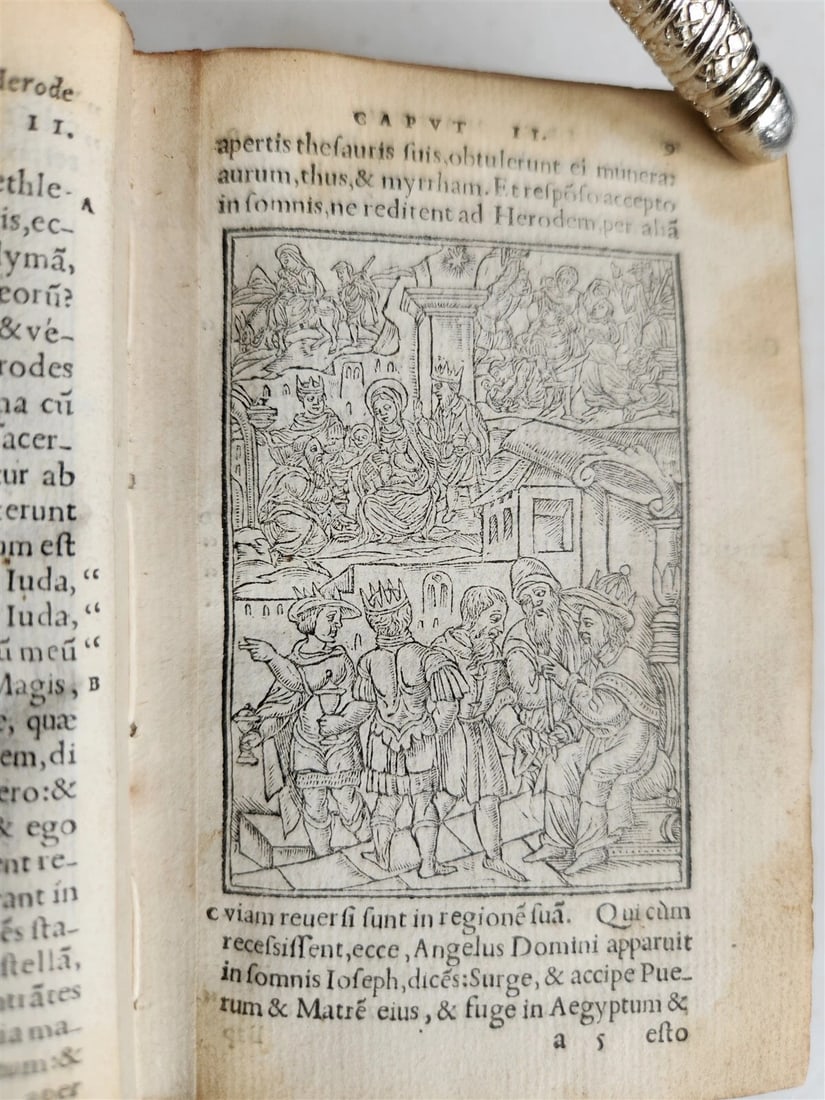 Herode
II.
ethle-
A
is,ec-
lymã,
eorũ?
& vé-
rodes
na cũ
acer-
ur ab
erunt
um est
Iuda, “
Iuda, “
ũ meũ “
Magis, B
e, quæ
em,di
ero:&
& ego
ent re-
rant in
ẽs sta-
stellã,
ntrãtes
ia ma-
num:&
aper
CAPVT II. 9
apertis thesauris suis,obtulerunt ei munera:
aurum,thus,& myrrham. Et respõso accepto
in somnis,ne redirent ad Herodem,per aliã
c viam reuersi sunt in regionẽ suã. Qui cùm
recessissent,ecce, Angelus Domini apparuit
in somnis Ioseph,dicẽs:Surge, & accipe Pue-
rum & Matrẽ eius, & fuge in Aegyptum &
a 5 esto